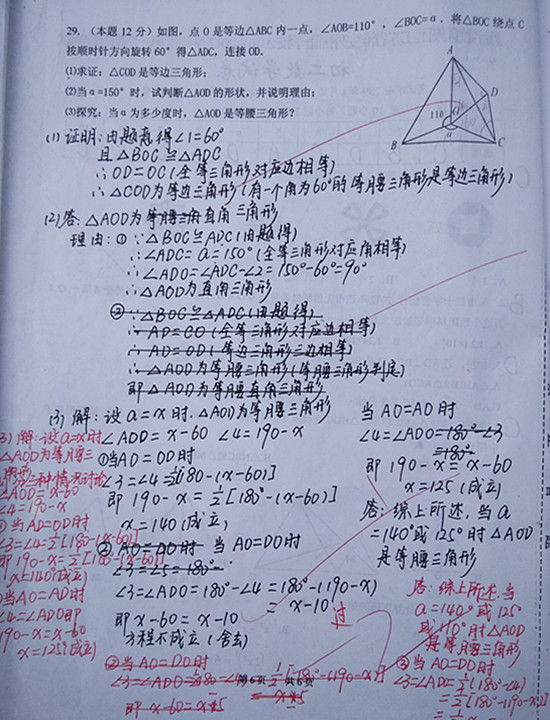 29. (本题12分)如图，点O是等边△ABC内一点，∠AOB=110°，∠BOC=α．将△BOC绕点C
按顺时针方向旋转60°得△ADC，连接OD．
(1)求证：△COD是等边三角形；
(2)当α=150°时，试判断△AOD的形状，并说明理由；
(3)探究：当α为多少度时，△AOD是等腰三角形？
A
D
110°
O
B
C
(1) 证明：由题意得∠1=60°
且△BOC≌△ADC
∴OD=OC(全等三角形对应边相等)
∴△COD为等边三角形(有一个角为60°的等腰三角形是等边三角形)
(2)答：△AOD为等腰三角直角三角形
理由：①∵△BOC≌△ADC(由题得)
∴∠ADC=α=150°(全等三角形对应角相等)
∴∠ADO=∠ADC-∠2=150°-60°=90°
∴△AOD为直角三角形
②∵△BOC≌△ADC(由题得)
∴AD=CO(全等三角形对应边相等)
∴AD=OD(等边三角形三边相等)
∴△AOD为等腰三角形(等腰三角形判定)
即△AOD为等腰直角三角形
(3) 解：设α=x时，△AOD为等腰三角形
∠ADO=x-60 ∠4=190-x
①当AD=OD时
∠3=∠4=½[180-(x-60)]
即190-x=½[180°-(x-60)]
x=140(成立)
② AO=DO时 当AO=DO时
∠3=∠5=180°-
∠3=∠ADO=180°-∠4=180°-(190-x)
=x-10
即x-60=x-10
方程不成立(舍去)
当AO=AD时
∠4=∠ADO=180°-∠3
=180°-
即190-x=x-60
x=125(成立)
答：综上所述，当α
=140°或125°时△AOD
是等腰三角形
过
3)解：设α=x时
△AOD为等腰三
角形
分三种情况讨论
∠ADO=x-60
∠4=190-x
①当AD=OD时
∠3=∠4=½[180-(x-60)]
即190-x=½[180-(x-60)]
x=140(成立)
当AO=AD时
∠4=∠ADO即
190-x=x-60
x=125(成立)
②当AO=DO时
∠3=∠ADO=180-∠4=½[180°-(190-x)]
即x-60=x+5
第6页 共6页
答：综上所述，当
α=140°或125°
或110°时△AOD
是等腰三角形
③当AO=DO时
∠3=∠ADO=½(180°-∠4)
=½[180°-(190-x)]